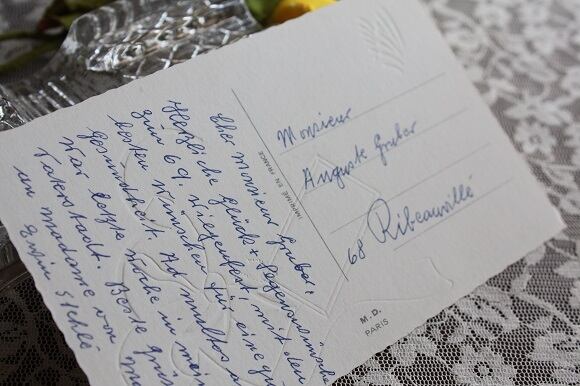 Cher Monsieur Gruber,
Herzliche Glück + Segenswünsche
zum 69. Wiegenfest, mit den
besten Wünschen für eine gu
Gesundheit. Ad multos a
War letzte Woche in mei
Vaterstadt. Beste Grüs
an Madame von
IMPRIMÉ EN FRANCE
Monsieur
Auguste Gruber
68 Ribeauvillé
M.D.
PARIS